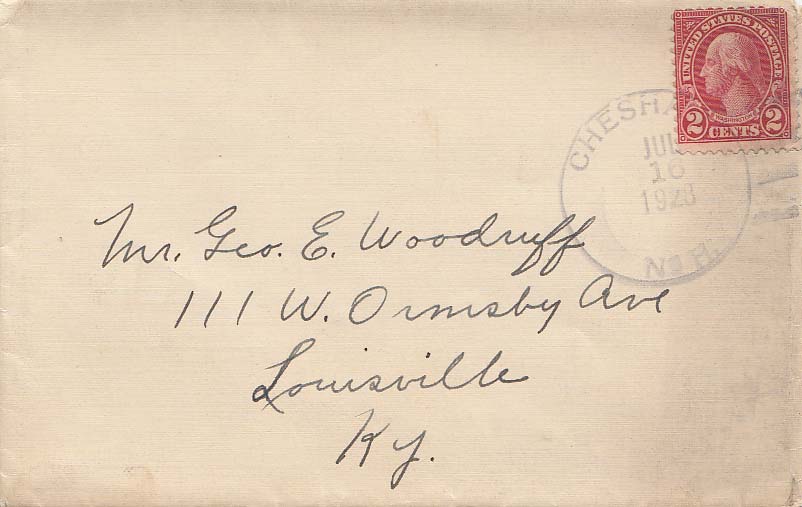 UNITED STATES POSTAGE
WASHINGTON
2 CENTS 2
CHESHA
JUL
16
1928
N.H.
Mr. Geo. E. Woodruff
111 W. Ormsby Ave
Louisville
Ky.